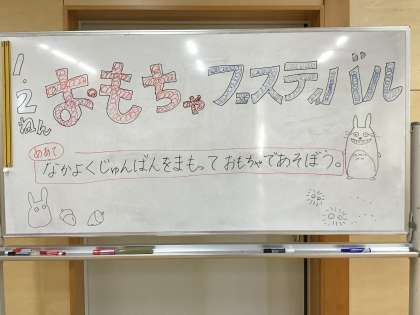 1.2ねん
おもちゃフェスティバル
めあて
なかよくじゅんばんをまもっておもちゃであそぼう。